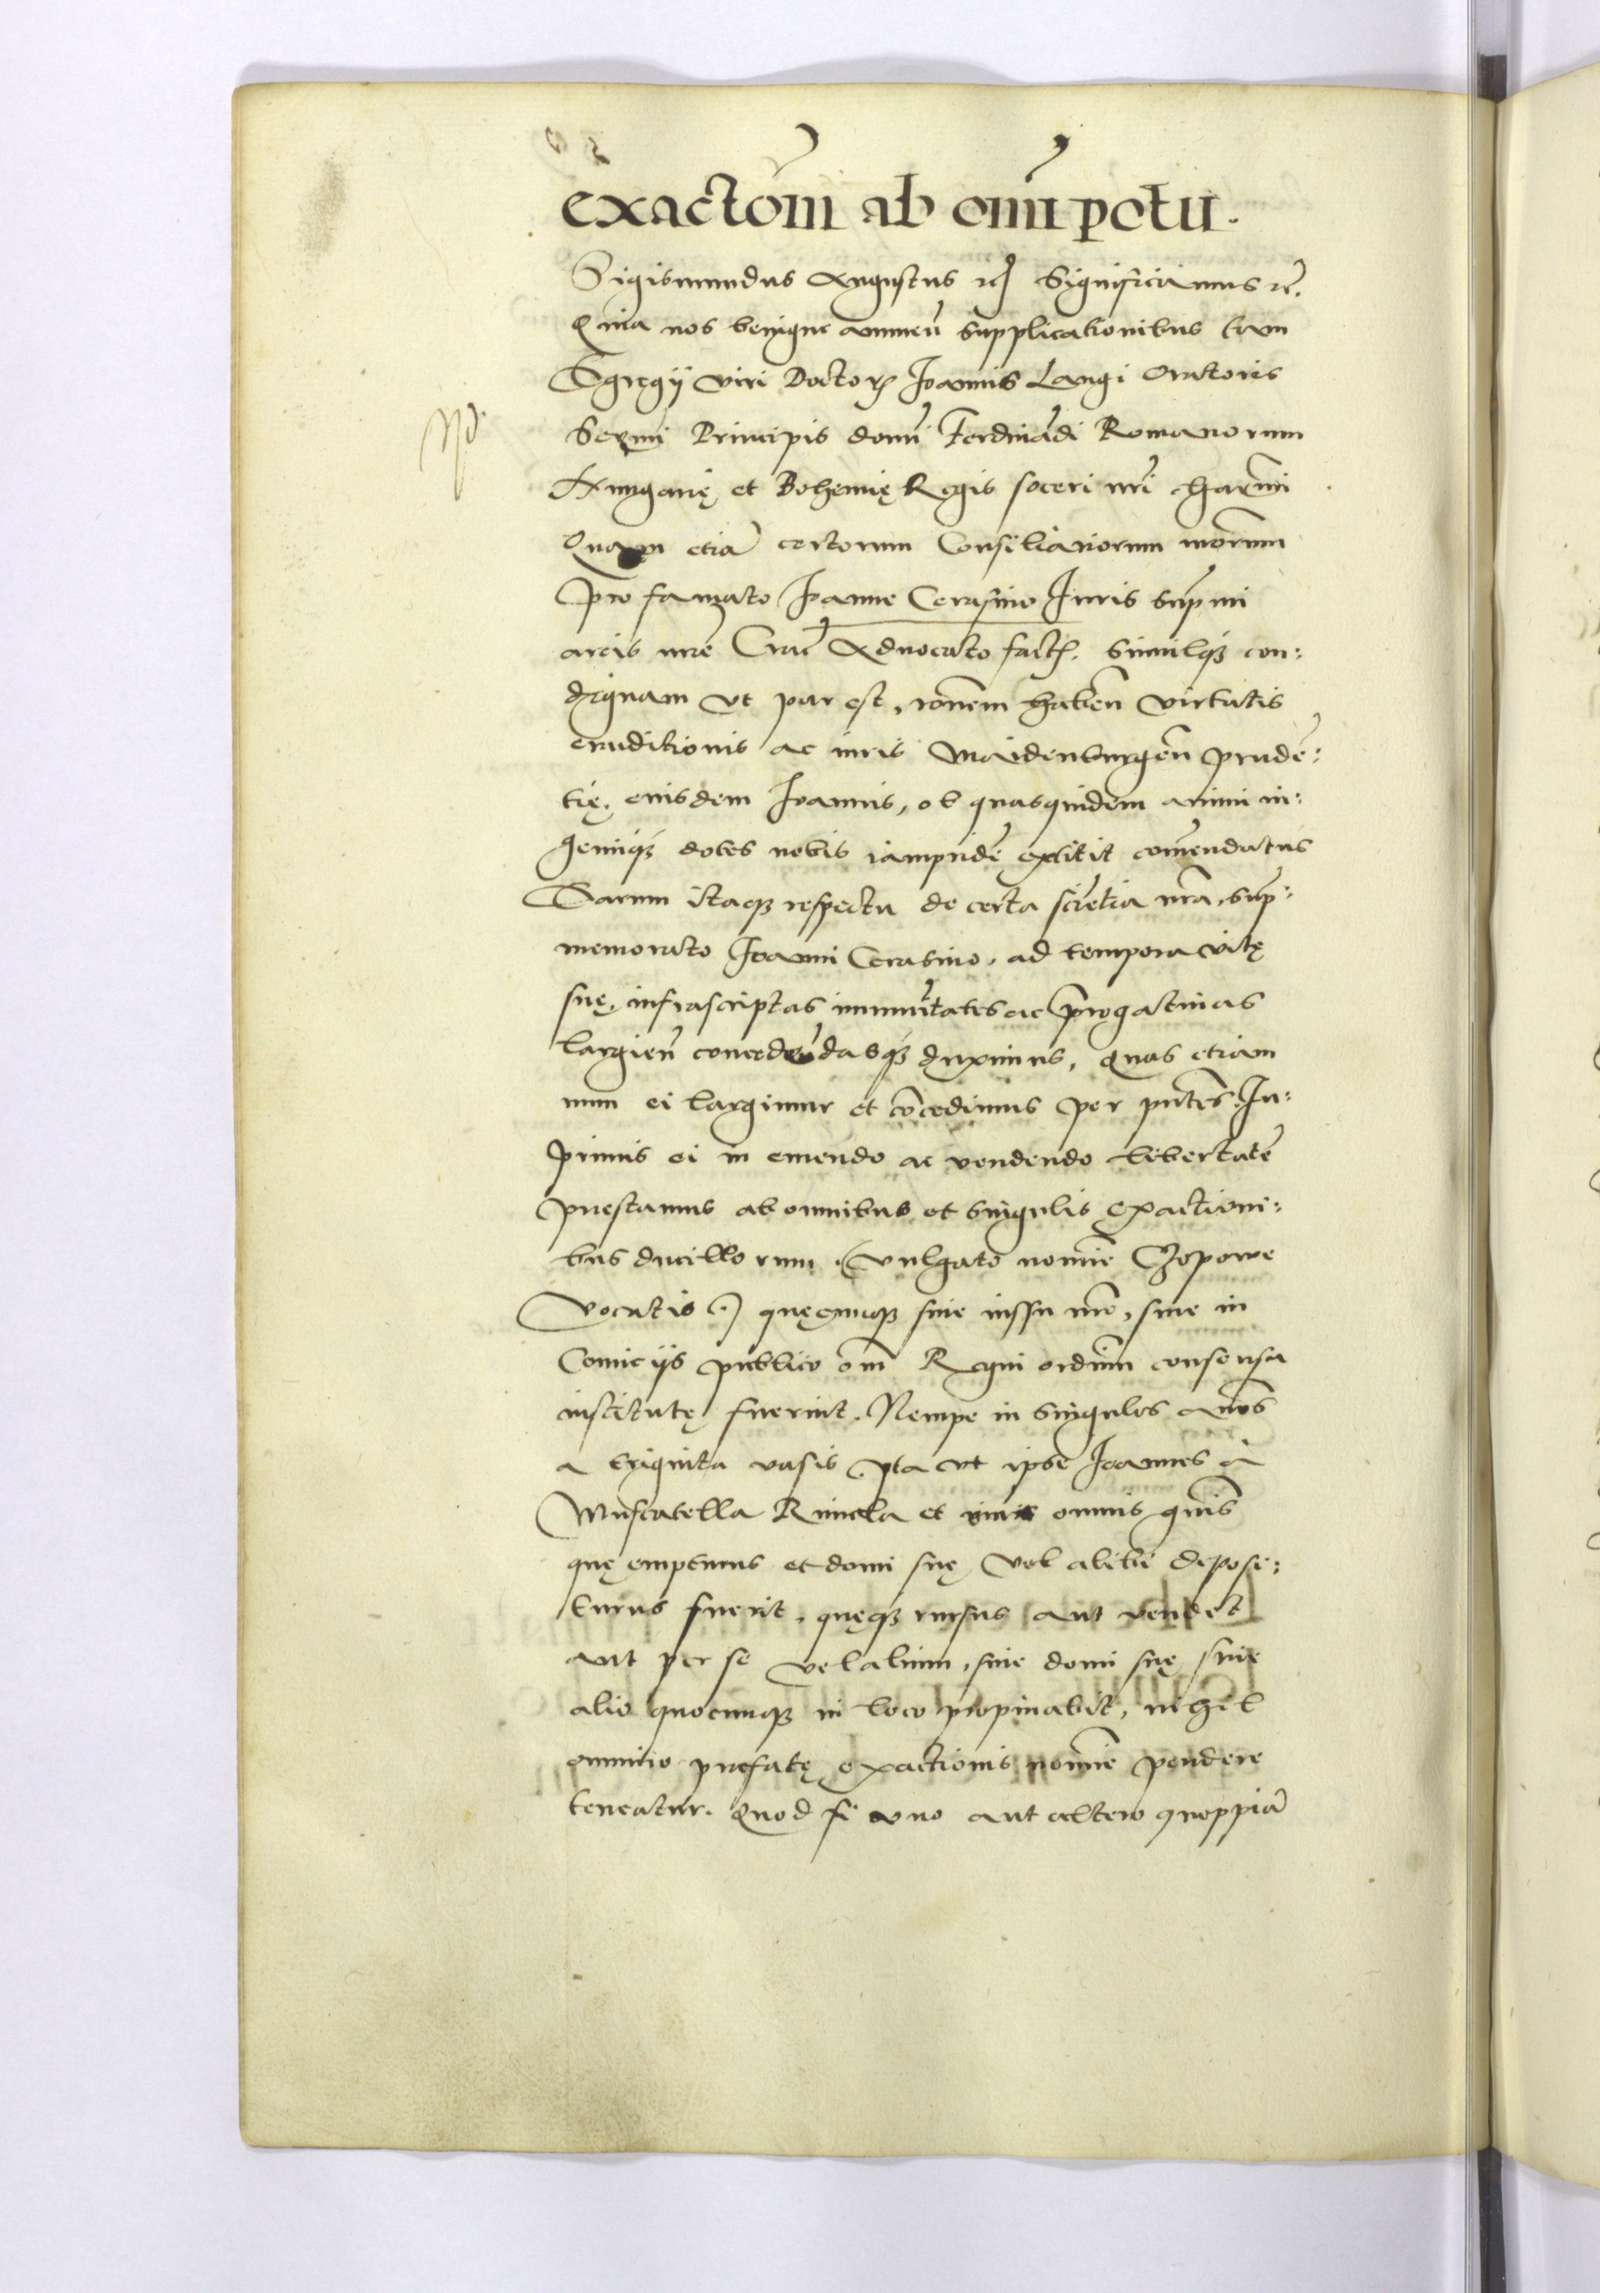 exactom̄ ab om̄i potu.
Sigismundus Augustus rc̄ Significamus rc̄.
Quia nos benigne annuen̄ supplicationibus tum
Egregij viri Doctor Ioannis Langi Oratoris
Sermi Principis domī Ferdinādi Romanorum
Hungarię et Bohemię Regis soceri nr̄i charmi
Quam etiā certorum Consiliariorum nr̄orum
Pro famato Ioanne Cerasino Iuris sup̄mi
arcis nr̄e Crac̄ Aduocato fact. Simulq; con:
dignam vt par est, ron̄em haben̄ virtutis
eruditionis ac iuris Maidenburgen̄ prudē:
tię, eiusdem Ioannis, ob quasquidem animi in:
geniiq; dotes nobis iampridē extitit com̄endatus
Earum itaq; respectu de certa sciētia nr̄a, sup̄:
memorato Ioanni Cerasino, ad tempora vitę
suę, infrascriptas immuītates ac p̄rogatiuas
largien̄ concedēdasq; duximus, quas etiam
nunc ei largimur et cōcedimus per pn̄tes. In:
primis ei in emendo ac vendendo libertatē
prestamus ab omnibus et singulis exactioni:
bus ducillorum (vulgato nomīe Czopowe
vocatis) quęcunq; siue iussu nr̄o, siue in
Comicijs publico om̄ Regni ordinū consensu
institutę fuerint. Nempe in singulos an̄os
a triginta vasis. Ita vt ipse Ioannes à
Muscatella Riuula et vini omnis gn̄is
quę empturus et domi suę vel alibi deposi:
turus fuerit, quęq; rursus aut vendet
aut per se vel alium, siue domi suę siue
alio quocunq; in loco propinabit, nihil
omnino prefatę exactionis nomīe pendere
teneatur. Quod si vno aut altero quoppiā